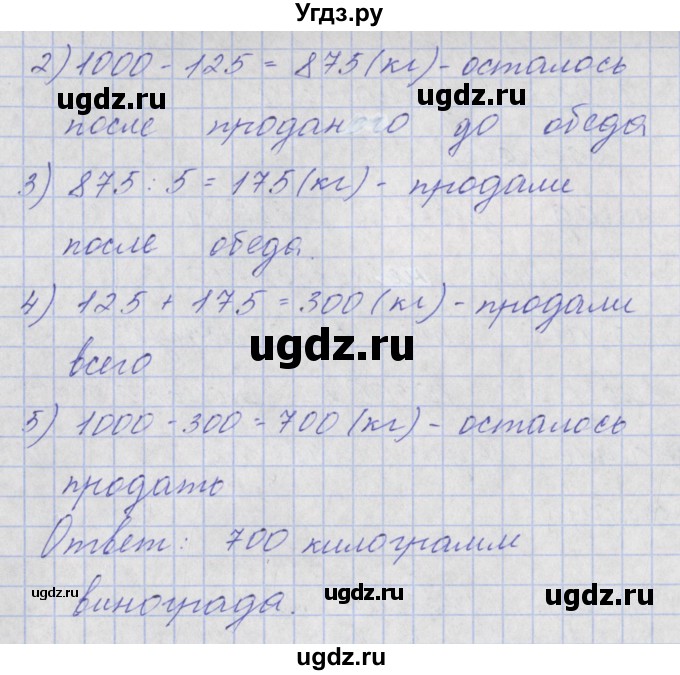 Угдз.ру
2) 1000 - 125 = 875 (кг) - осталось
ugdz.ru
ugdz.ru
после проданого до обеда
3) 875 : 5 = 175 (кг) - продали
ugdz.ru
после обеда.
4) 125 + 175 = 300 (кг) - продали
ugdz.ru
всего
5) 1000 - 300 = 700 (кг) - осталось
продать
ugdz.ru
Ответ: 700 килограмм
ugdz.ru
ugdz.ru
ugdz.ru
винограда.
ugdz.ru